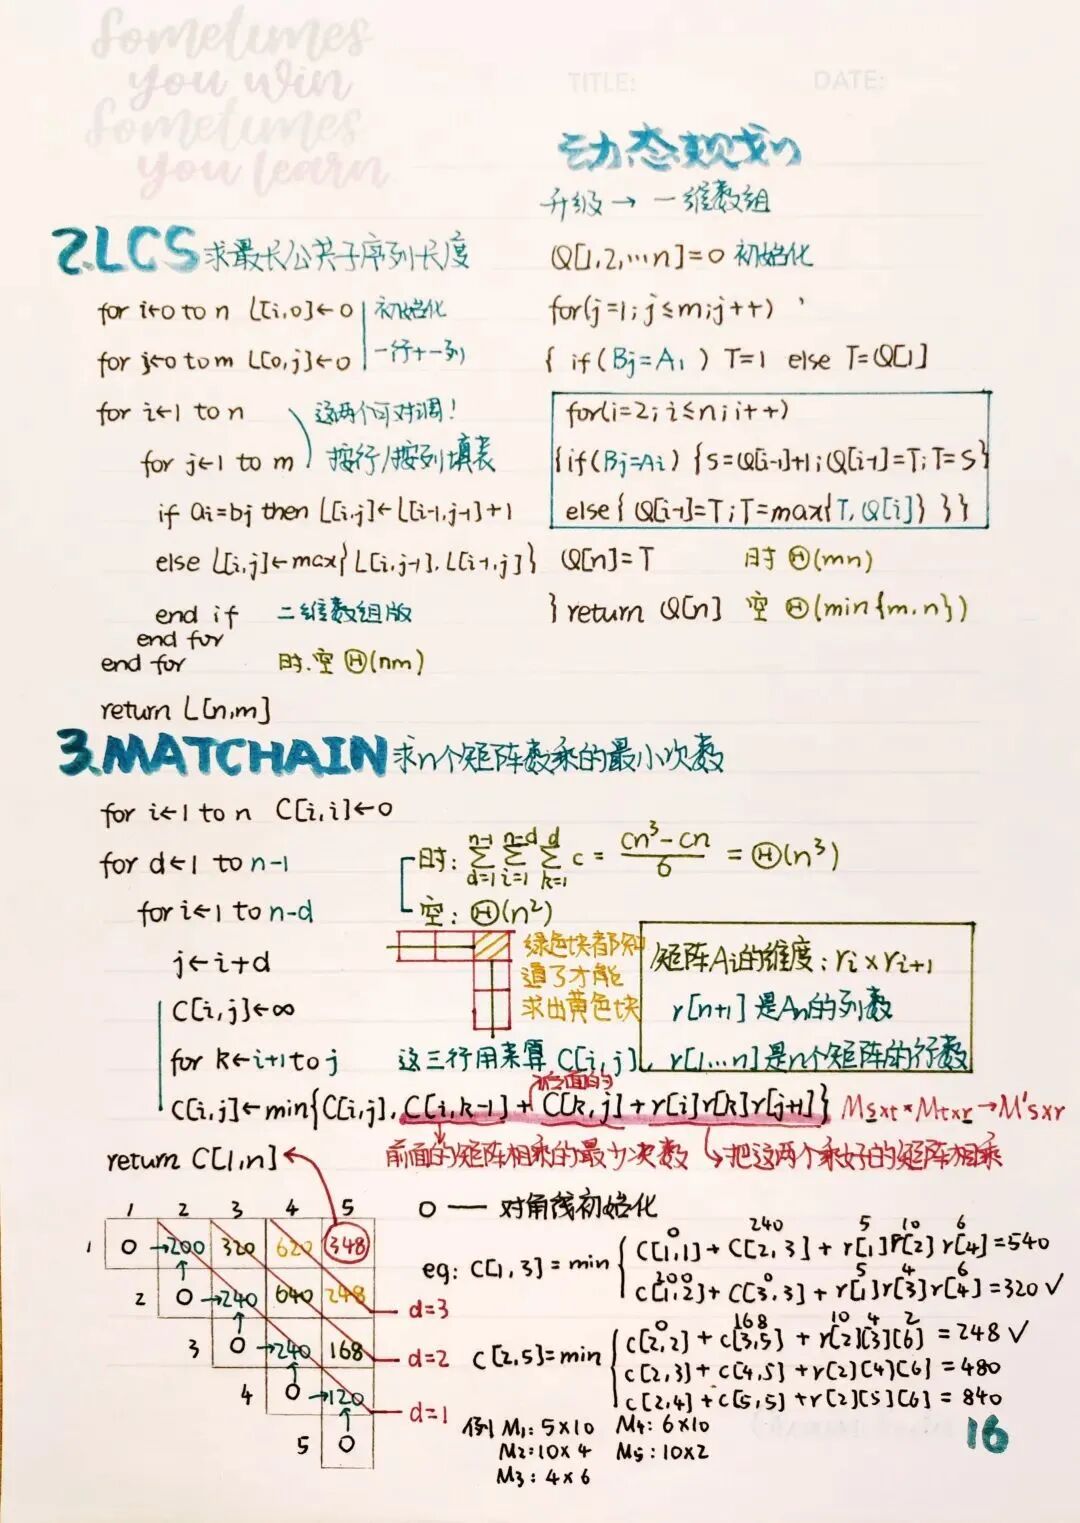 Sometimes
you win
Sometimes
you learn
TITLE:
DATE:
动态规划
2.LCS 求最长公共子序列长度
for i←0 to n L[i,0]←0 初始化
for j←0 to m L[0,j]←0 一行+一列
for i←1 to n 这两个可对调!
for j←1 to m 按行/按列填表
if ai=bj then L[i,j]←L[i-1,j-1]+1
else L[i,j]←max{L[i,j-1],L[i-1,j]}
end if 二维数组版
end for
end for 时.空 Θ(nm)
return L[n,m]
升级→一维数组
Q[1,2,...n]=0 初始化
for(j=1;j≤m;j++)
{ if(Bj=A1) T=1 else T=Q[1]
for(i=2;i≤n;i++)
{if(Bj=Ai){S=Q[i-1]+1;Q[i-1]=T;T=S}
else{Q[i-1]=T;T=max{T,Q[i]}}}
Q[n]=T 时 Θ(mn)
} return Q[n] 空 Θ(min{m.n})
3.MATCHAIN 求n个矩阵数乘的最小次数
for i←1 to n C[i,i]←0
for d←1 to n-1
for i←1 to n-d
j←i+d
C[i,j]←∞
for k←i+1 to j 这三行用来算 C[i,j].
C[i,j]←min{C[i,j],C[i,k-1]+C[k,j]+r[i]r[k]r[j+1]} Msxt*Mtxr→M'sxr
后面的
前面的矩阵相乘的最少次数 把这两个乘好的矩阵相乘
return C[1,n]
时: n-1∑d=1 n-d∑i=1 d∑k=1 c = cn³-cn/6 = Θ(n³)
空: Θ(n²)
绿色块都知
道了才能
求出黄色块
矩阵Ai的维度:ri×ri+1
r[n+1]是An的列数
r[1...n]是n个矩阵的行数
1 2 3 4 5
1 0 →200 320 620 348
2 0 →240 640 248
3 0 →240 168
4 0 →120
5 0
d=3
d=2
d=1
0 — 对角线初始化
0 240 5 10 6
eg: C[1,3]=min C[1,1]+C[2,3]+r[1]r[2]r[4]=540
200 0 5 4 6
C[1,2]+C[3,3]+r[1]r[3]r[4]=320 ✓
0 168 10 4 2
C[2,5]=min C[2,2]+C[3,5]+r[2][3][6]=248 ✓
C[2,3]+C[4,5]+r[2][4][6]=480
C[2,4]+C[5,5]+r[2][5][6]=840
例 M1:5×10 M4:6×10
M2:10×4 M5:10×2
M3:4×6
16